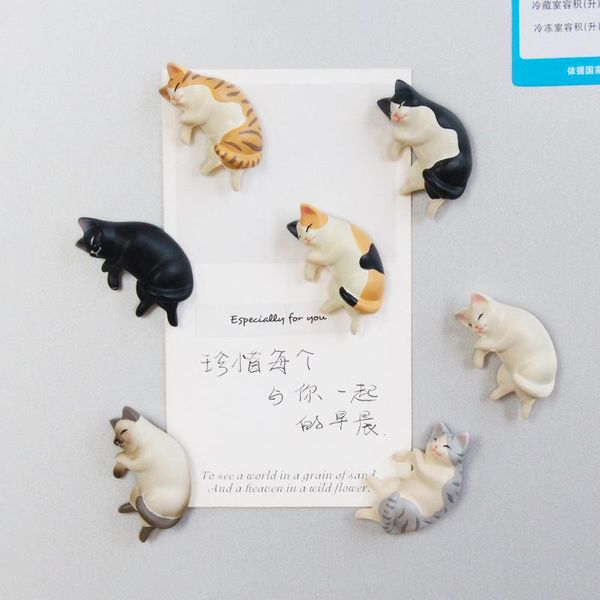 冷藏室容积(升)
冷冻室容积(升)
依据国家
Especially for you
珍惜每个
与你一起
的早晨.
To see a world in a grain of sand
And a heaven in a wild flower.